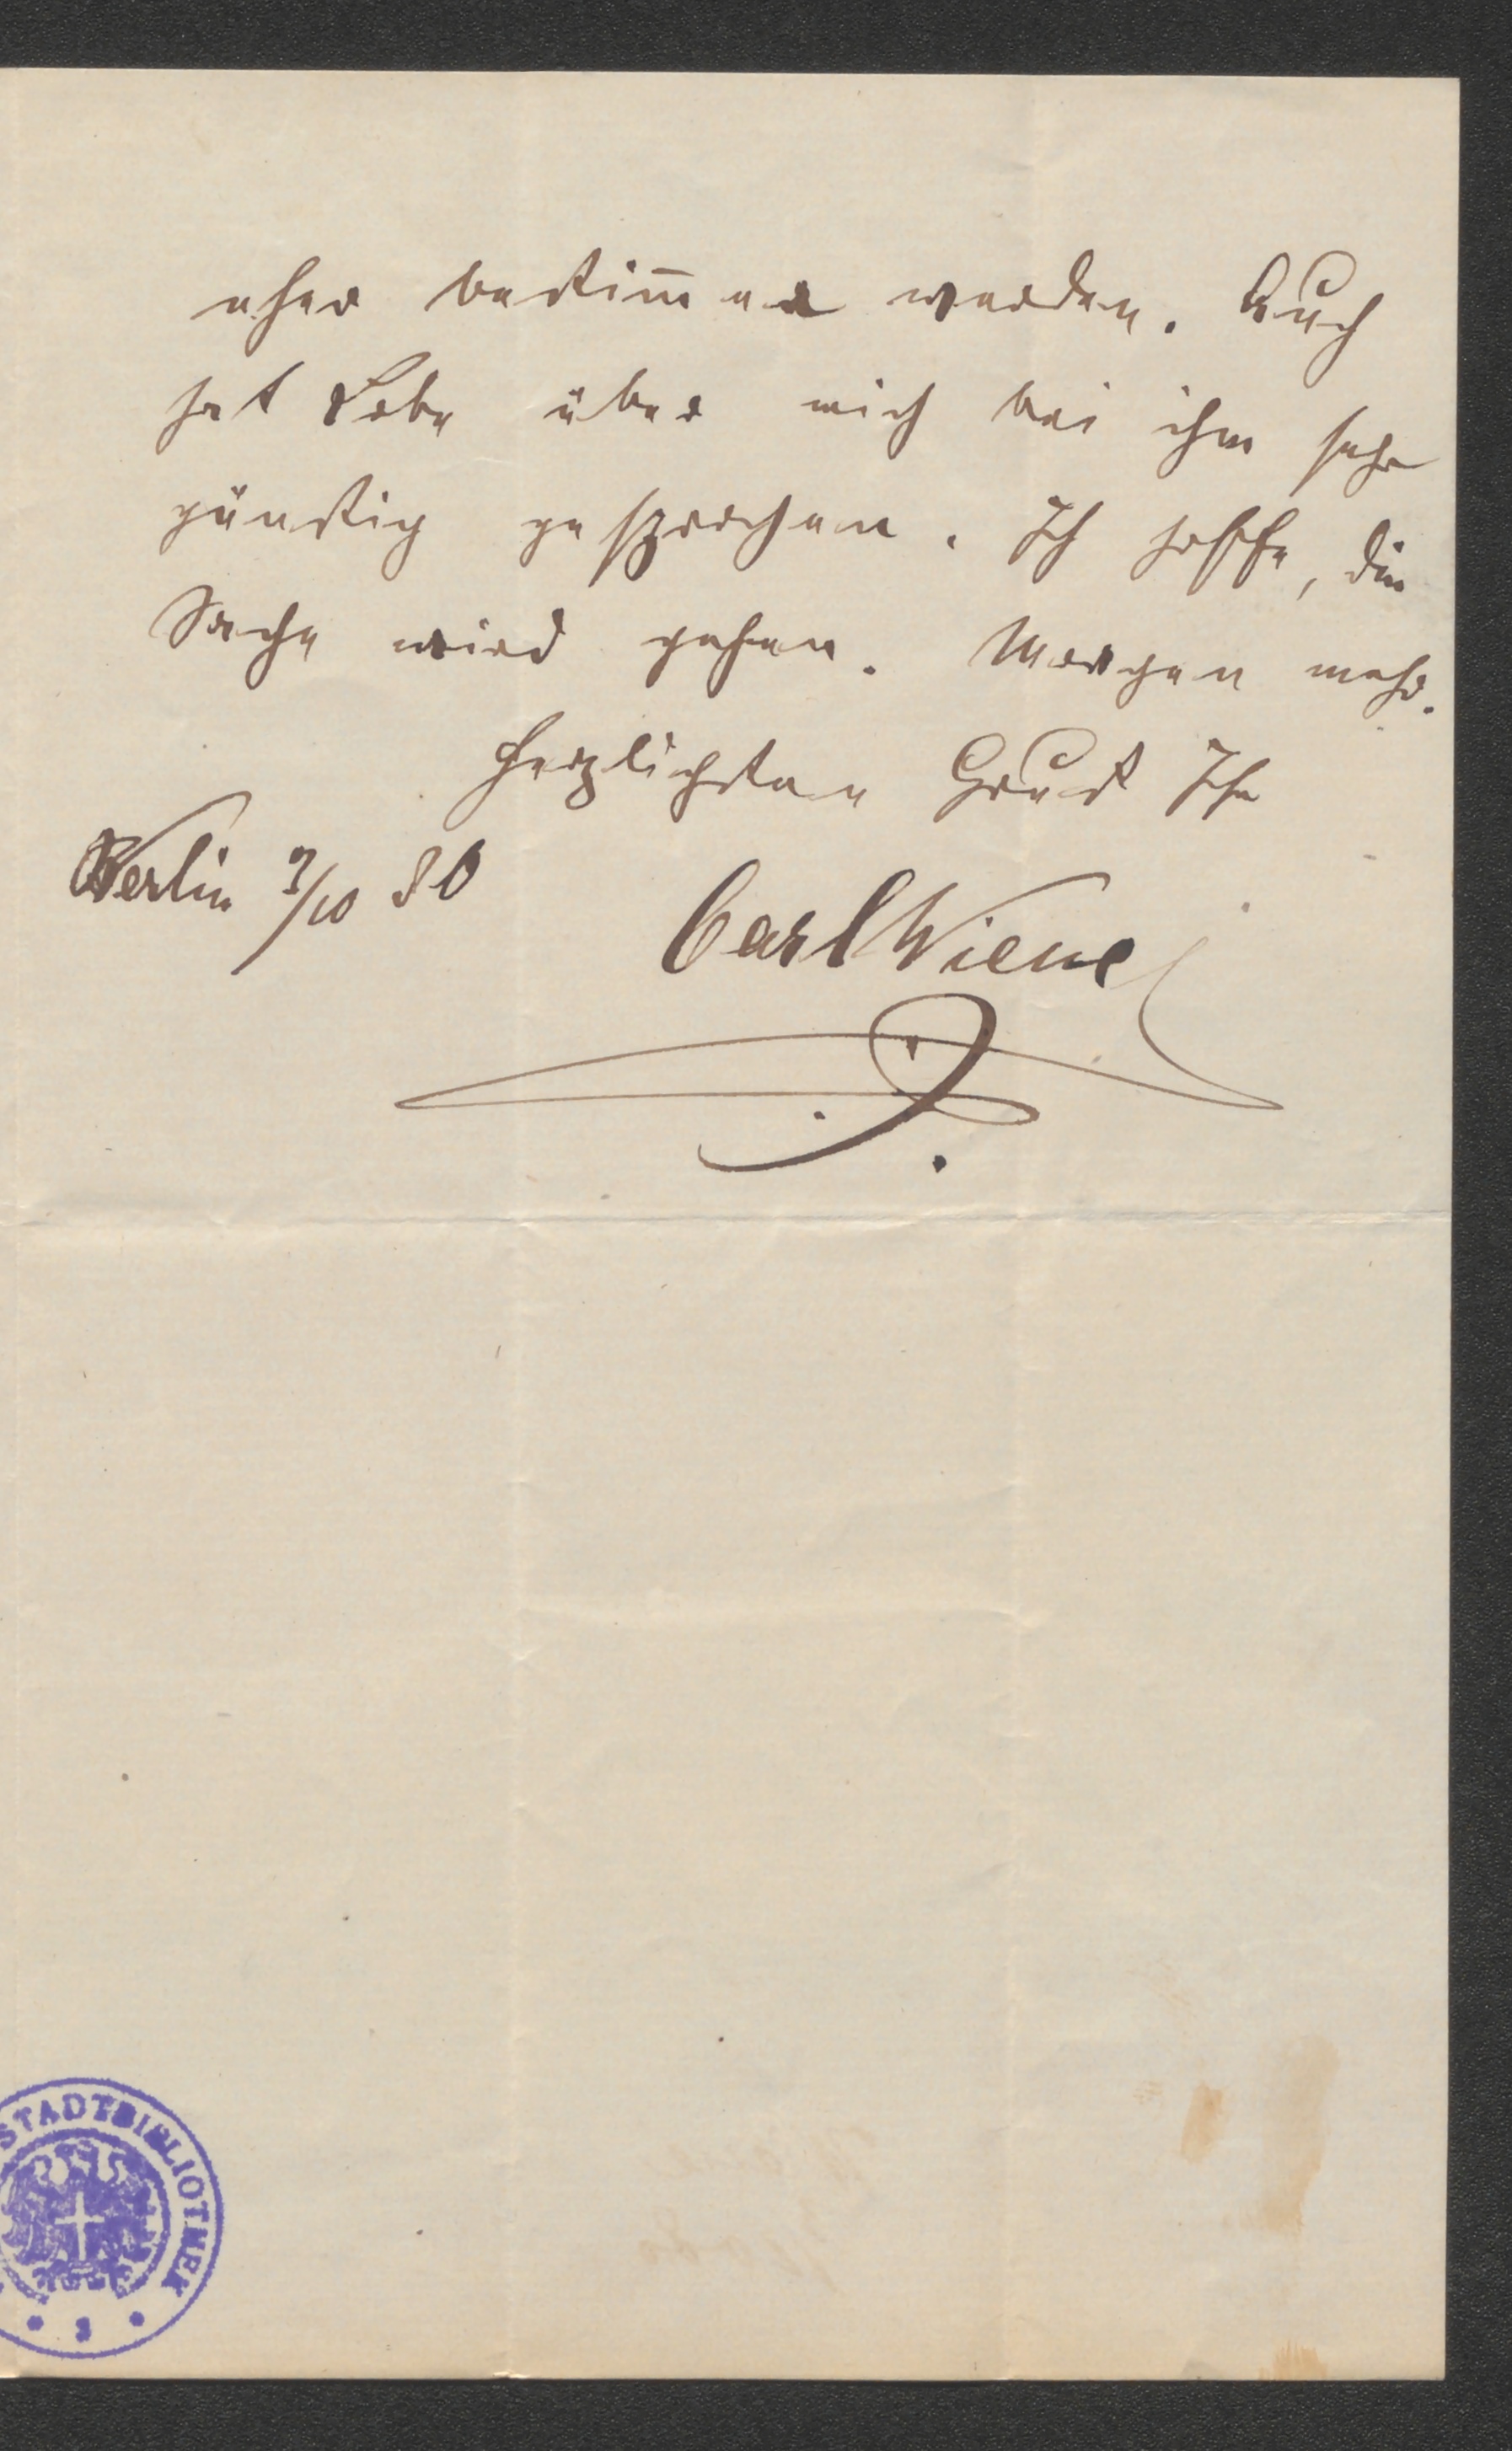 eher bestim̅er werden. Auch
hat Lobe über mich bei ihm sehr
günstig gesprochen. Ich hoffe, die
Sache wird gehen. Morgen mehr.
Herzlichsten Gruß Ihr
Berlin 9/10 80
Carl Wiene
STADTBIBLIOTHEK